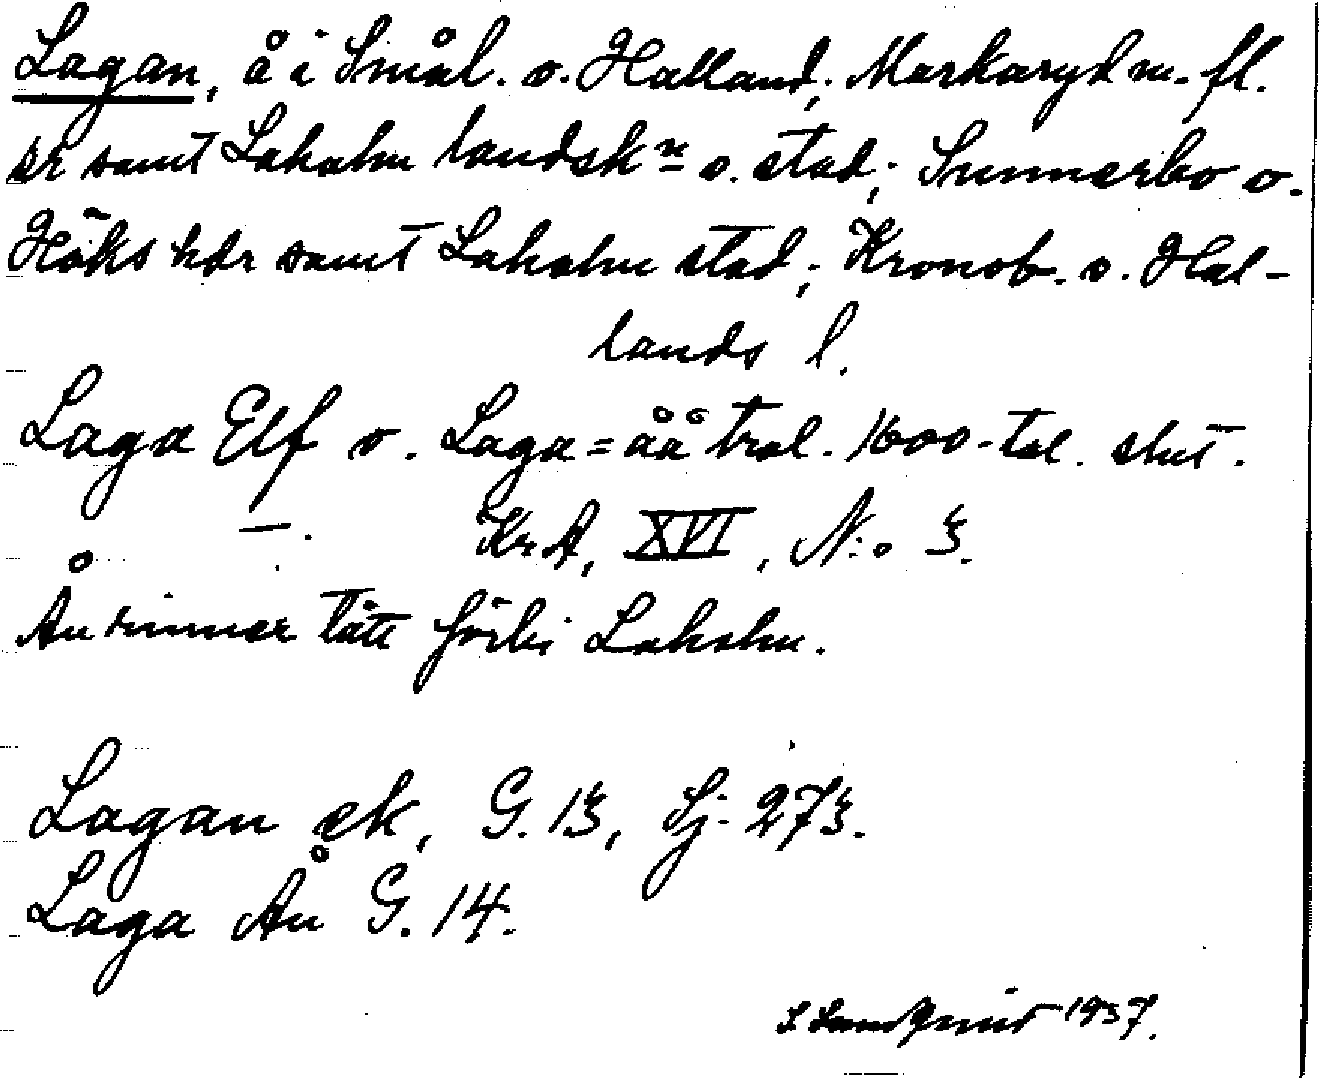 Lagan, å i Smål. o. Halland; Markaryd m. fl.
sr samt Laholm landskn o. stad; Sunnerbo o.
Höks hdr samt Laholm stad; Kronob. o. Hal-
lands l.
Laga Elf o. Laga=åå trol. 1600-tal. slut.
KrA, XVI, N:o 3.
Ån rinner tätt förbi Laholm.
Lagan ek, G. 13, Sj. 273.
Laga Ån G. 14.
1937.